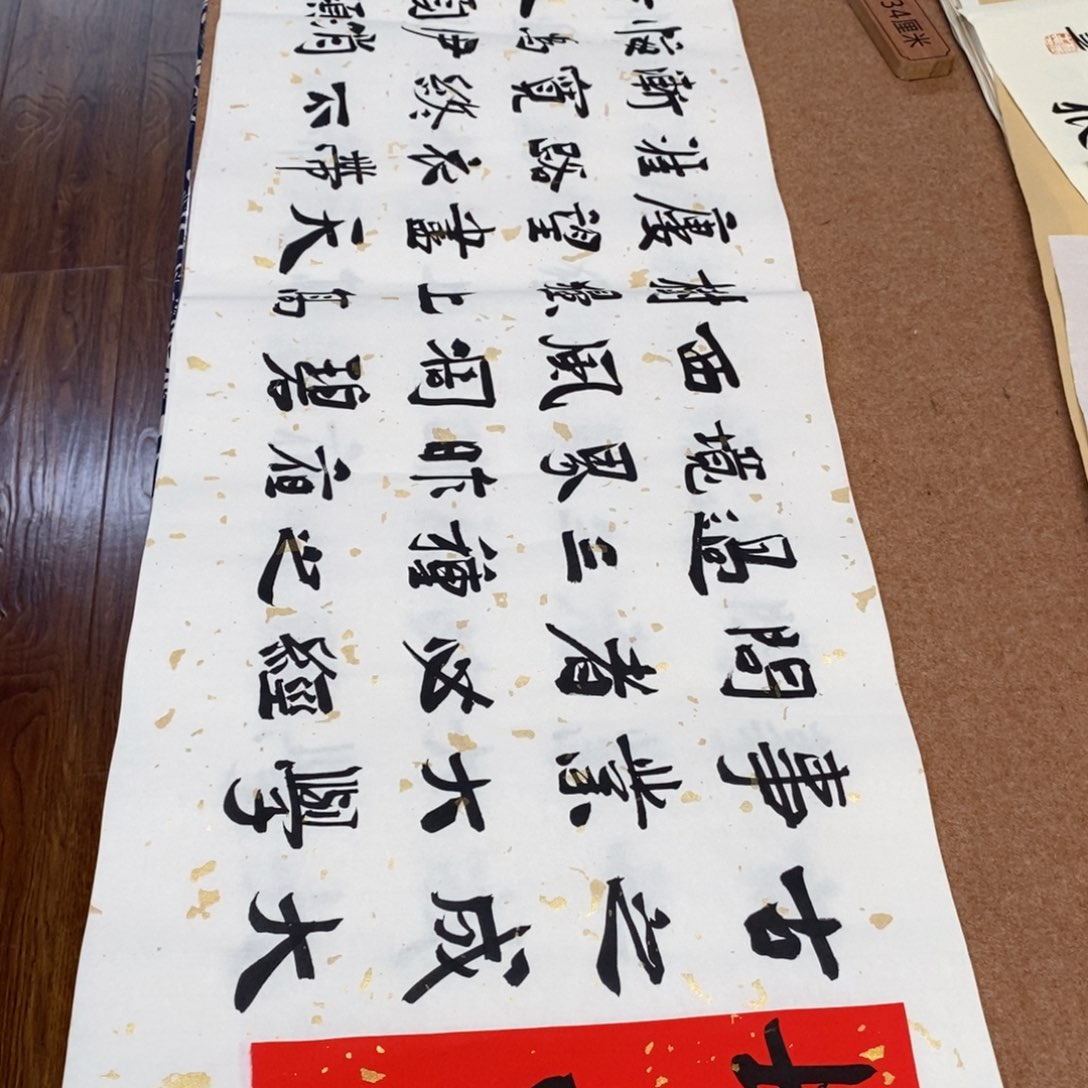 古之成大
事業大學
問者必經
過三種之
境界昨夜
西風凋碧
樹獨上高
樓望盡天
涯路衣帶
漸寬終不
悔為伊消
34厘米